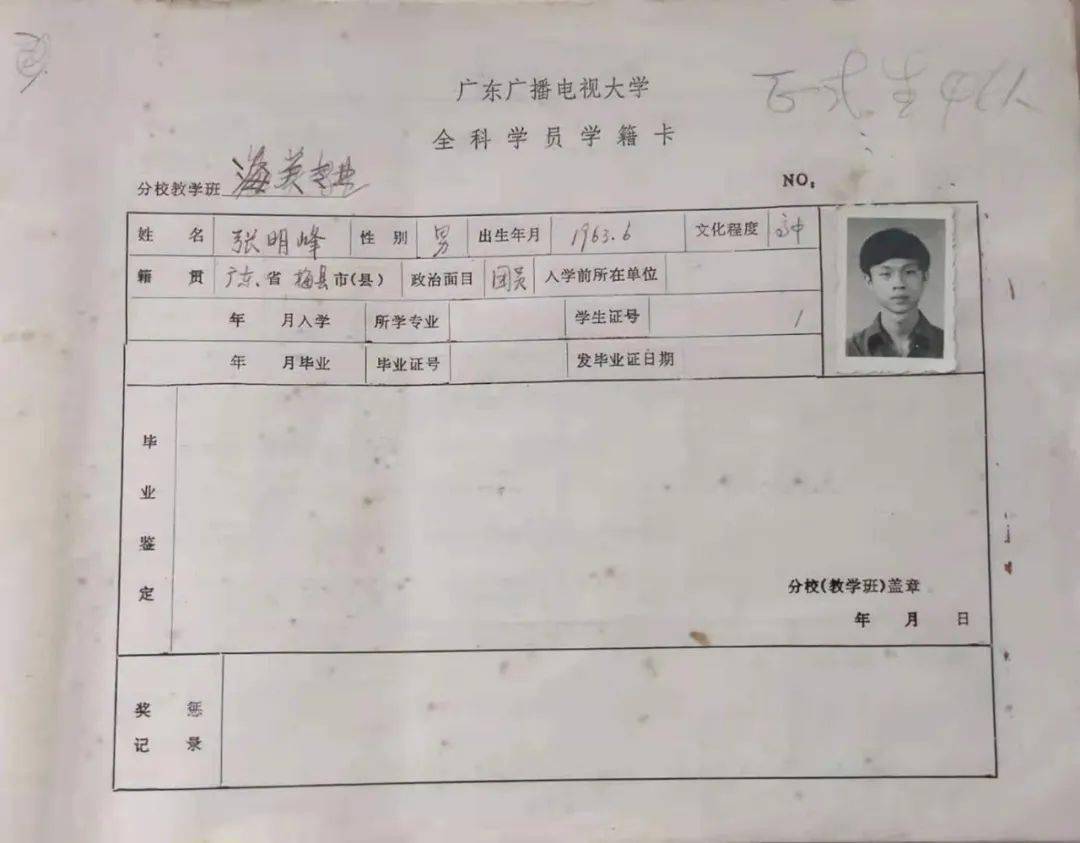 广东广播电视大学
全科学员学籍卡
分校教学班 海英
NO:
姓名 张明峰 性别 男 出生年月 1963.6 文化程度 高中
籍贯 广东省 梅县市(县) 政治面目 团员 入学前所在单位
年 月入学 所学专业 学生证号 1
年 月毕业 毕业证号 发毕业证日期
毕业鉴定
分校(教学班)盖章
年 月 日
奖惩
记录